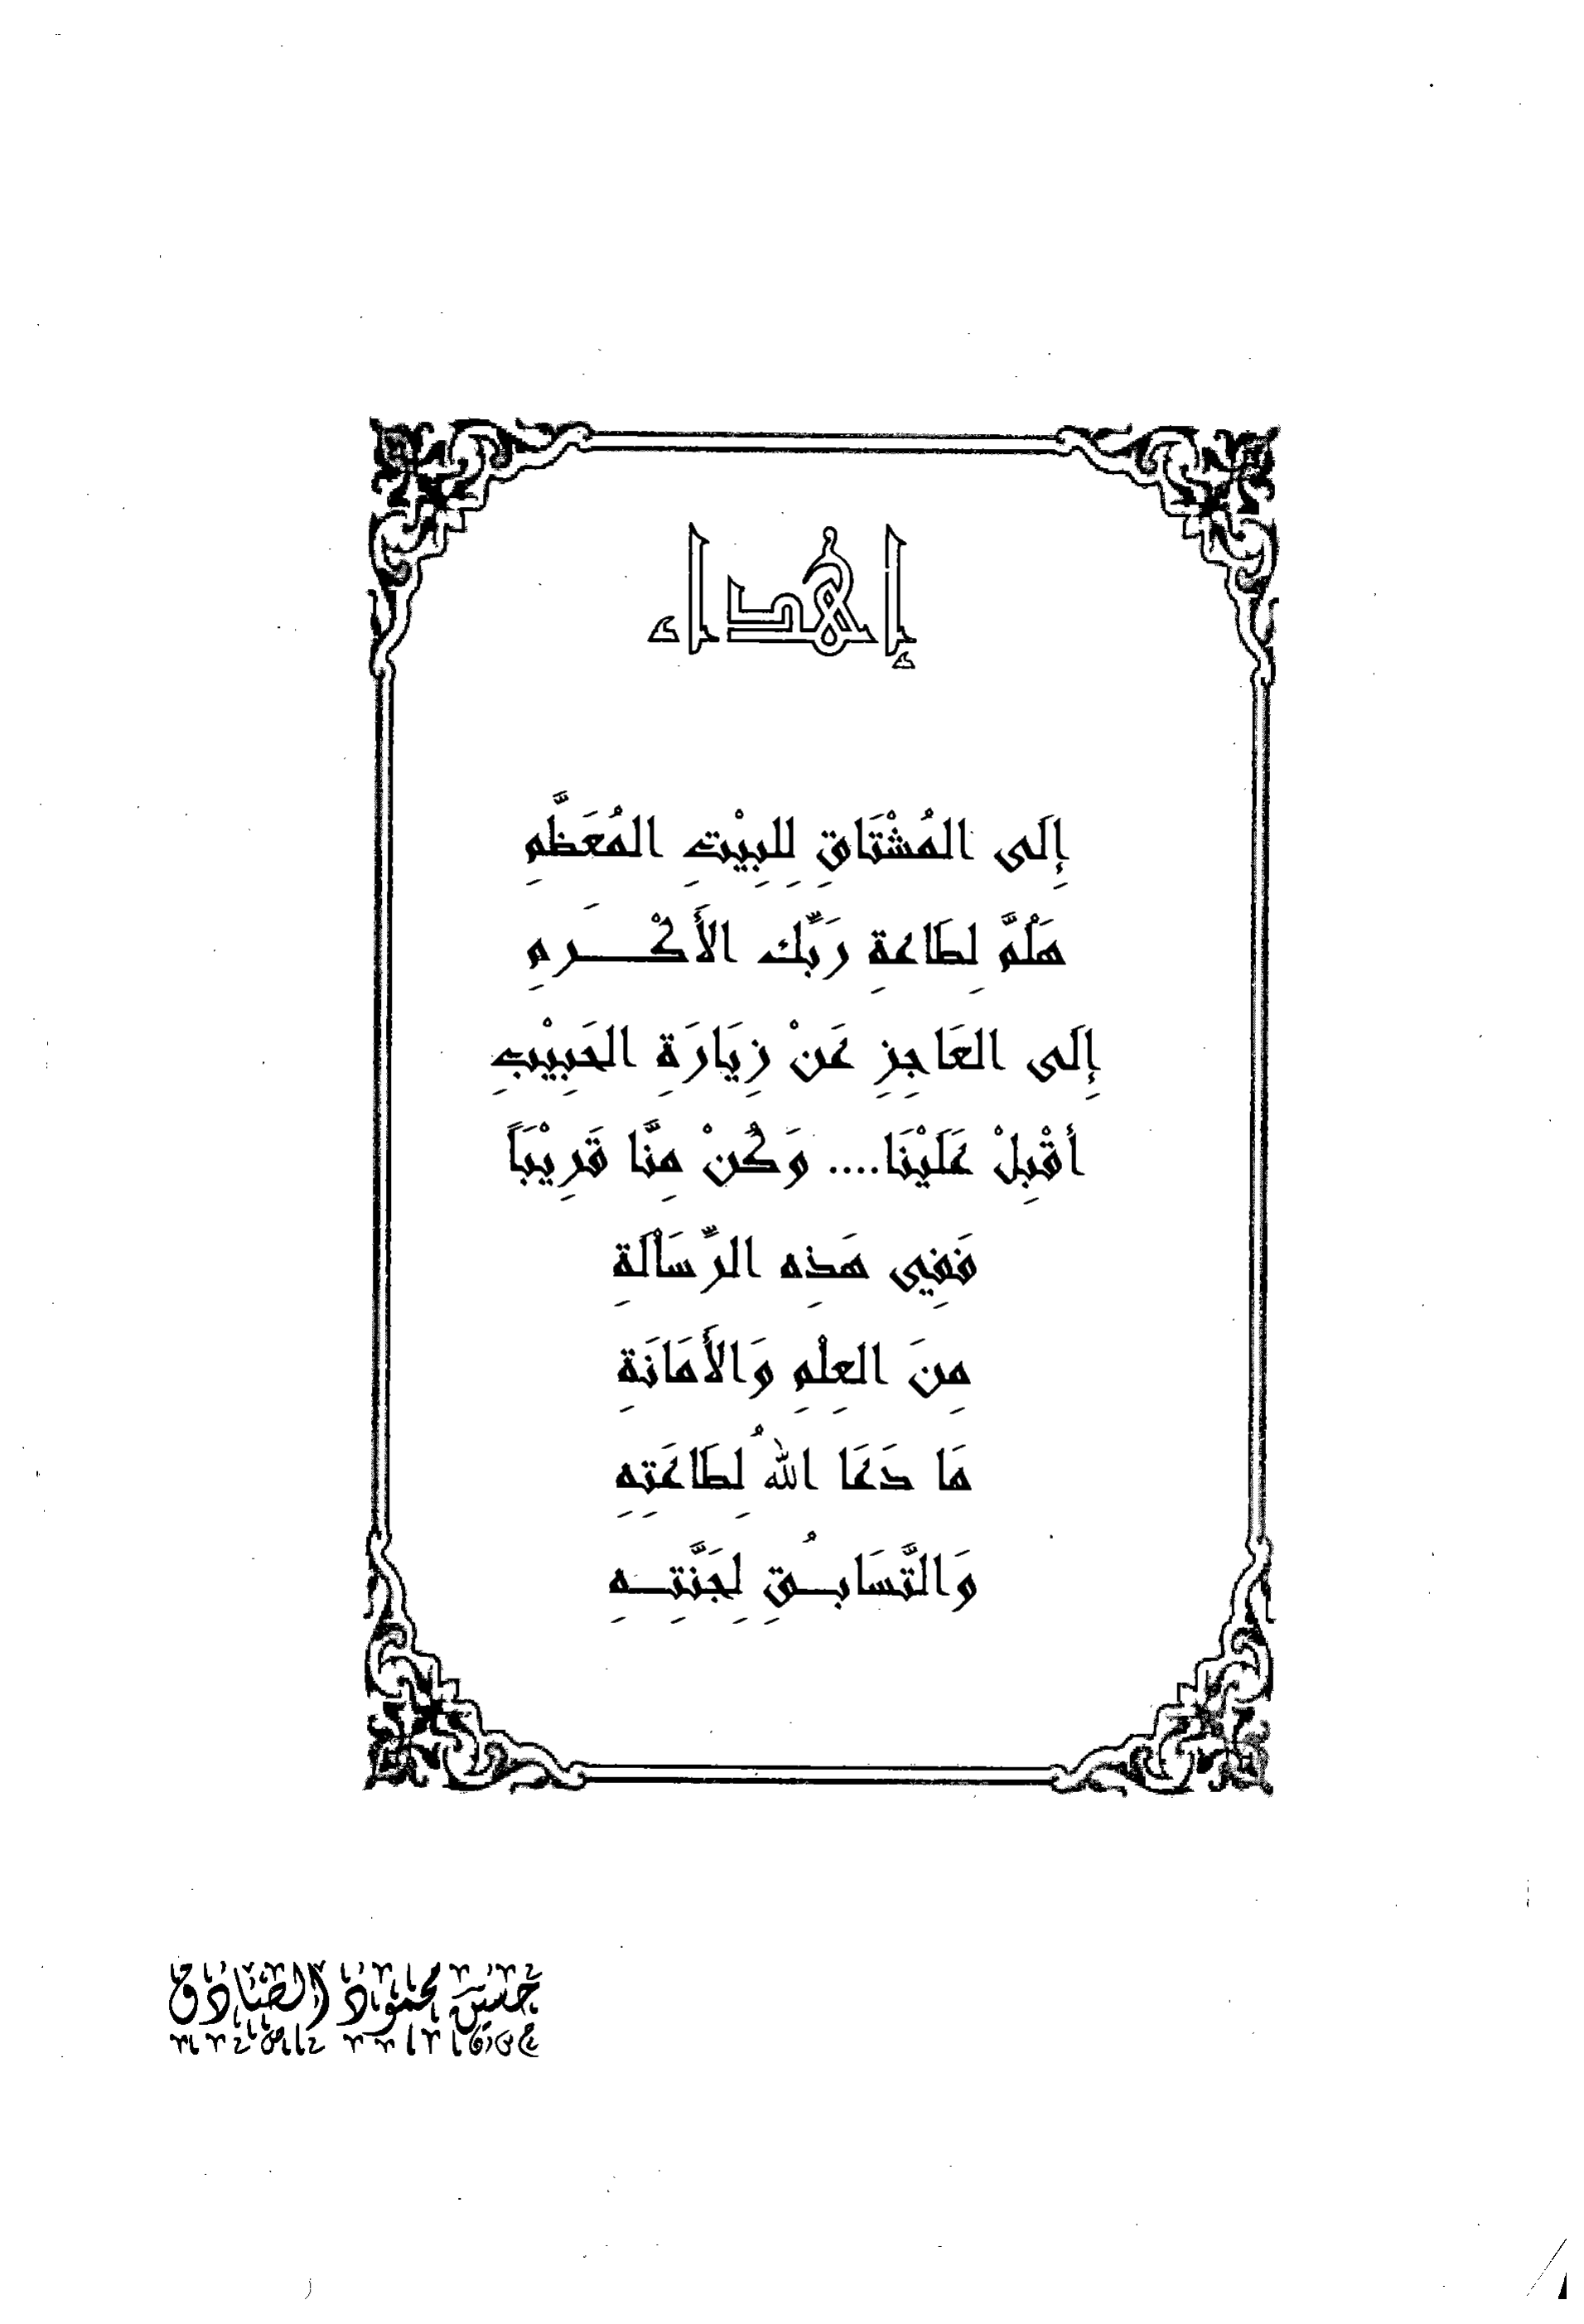 إهداء
إِلَى المُشْتَاقِ لِلبِيْتِ المُعَظَّمِ
هَلُمَّ لِطَاعةِ رَبِّك الأَكْرَمِ
إِلَى العَاجِزِ عَنْ زِيَارَةِ الحَبِيْبِ
أقْبِلْ عَلَيْنَا.... وَكُنْ مِنَّا قَرِيْبَاً
فَفِي هَذِه الرِّسَاْلَةِ
مِنَ العِلْمِ وَالأَمَانَةِ
مَا دَعَا اللهُ لِطَاعَتِهِ
وَالتَّسَابُقِ لِجَنَّتِهِ
حسين محمود الصادق